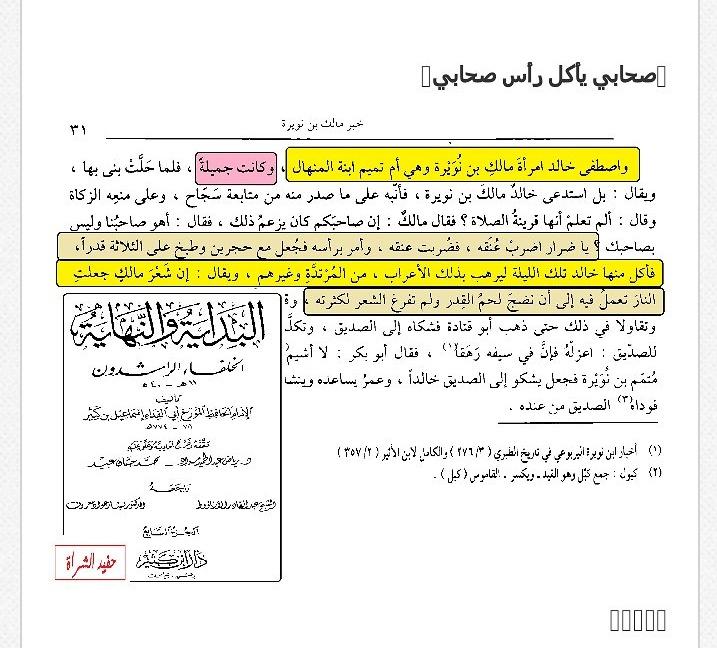 صحابي يأكل رأس صحابي
خبر مالك بن نويرة
٣١
واصطفى خالد امرأةَ مالكِ بن نُوَيْرة وهي أم تميم ابنة المنهال ، وكانت جميلةً ، فلما حَلَّتْ بنى بها ،
ويقال : بل استدعى خالدٌ مالكَ بن نويرة ، فأنَّبه على ما صدر منه من متابعة سَجَاح ، وعلى منعِه الزكاة
وقال : ألم تعلمْ أنها قرينةُ الصلاة ؟ فقال مالكٌ : إن صاحبَكم كان يزعمُ ذلك ، فقال : أهو صاحبُنا وليس
بصاحبك ؟ يا ضرار اضربْ عُنُقَه ، فضُربت عنقه ، وأمر برأسه فجُعل مع حجرين وطبخ على الثلاثة قدراً ،
فأكل منها خالد تلك الليلة ليرهب بذلك الأعراب ، من المُرْتدَّةِ وغيرهم ، ويقال : إن شَعْرَ مالكٍ جعلتِ
النارَ تعملُ فيه إلى أن نضِجَ لحمُ القِدر ولم تفرغِ الشعر لكثرته ،
وتقاولا في ذلك حتى ذهب أبو قتادة فشكاه إلى الصديق ،
للصدِّيق : اعزلْهُ فإنَّ في سيفه رَهَقاً(١) ، فقال أبو بكر : لا أشيمُ
مُتمِّم بن نُوَيْرة فجعل يشكو إلى الصديق خالداً ، وعمرُ يساعده
فوداهُ(٣) الصديق من عنده .
(١) أخبار ابن نويرة اليربوعي في تاريخ الطبري ( ٣/ ٢٧٦ ) والكامل لابن الأثير ( ٢/ ٣٥٧ )
(٢) كبول : جمع كَبْل وهو القيد ـ ويكسر ـ القاموس ( كبل ) .
البداية والنهاية
الخلفاء الراشدون
تأليف
الإمام الحافظ المؤرخ أبي الفداء إسماعيل بن كثير
دار ابن كثير
حفيد الشراة